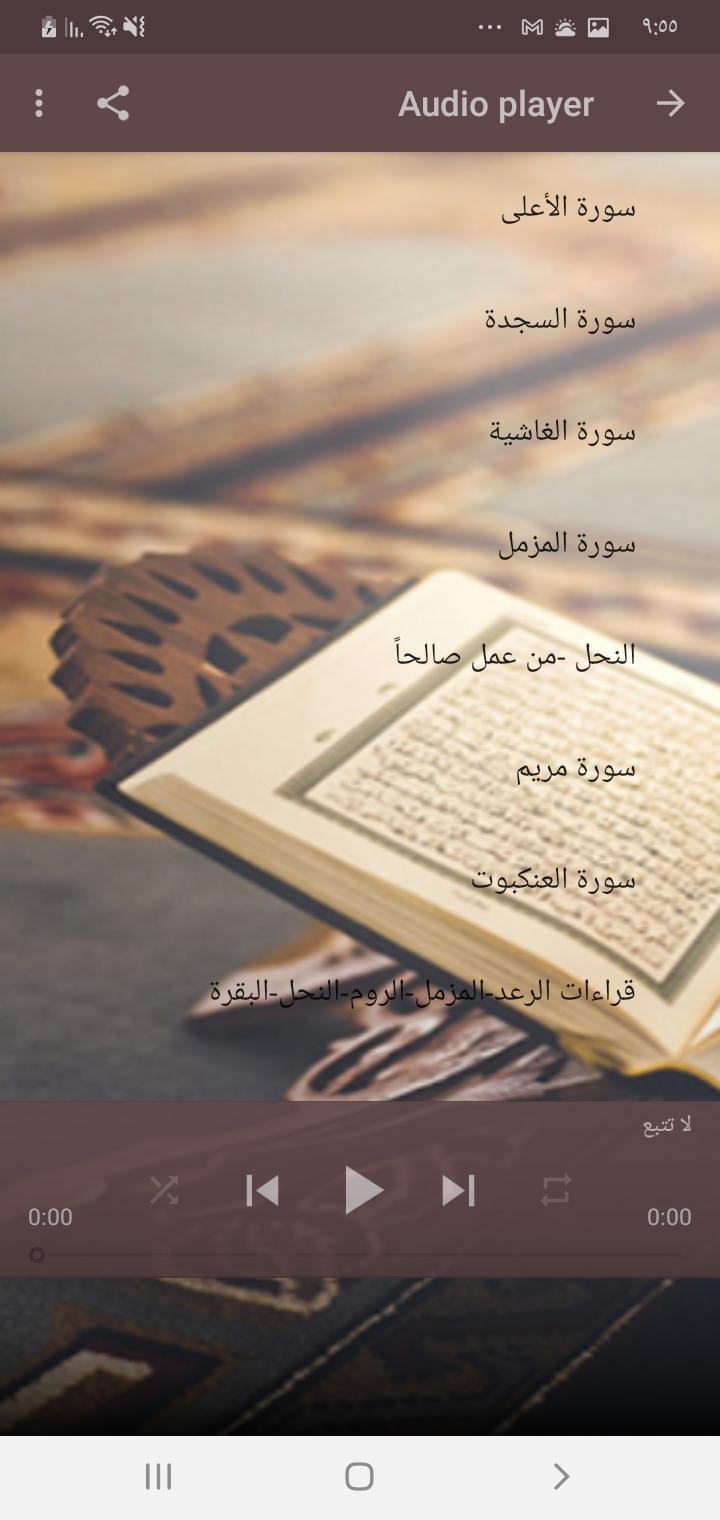 ٩:٥٥
Audio player
سورة الأعلى
سورة السجدة
سورة الغاشية
سورة المزمل
النحل -من عمل صالحاً
سورة مريم
سورة العنكبوت
قراءات الرعد-المزمل-الروم-النحل-البقرة
لا تتبع
0:00
0:00